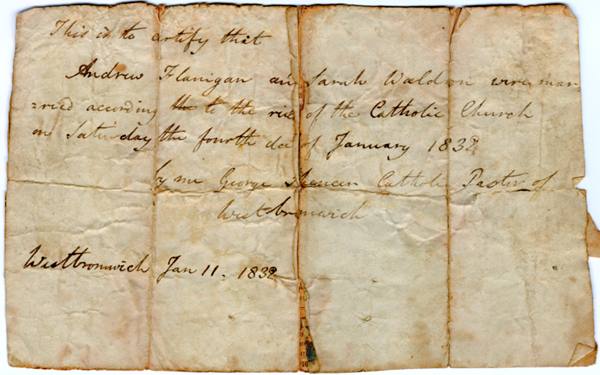 This is to certify that
Andrew Flanigan an Sarah Waldron were mar
=ried according the to the rite of the Catholic Church
on Saturday the fourth da of January 1832
by me George Spencer Catholic Pastor of
Westbromwich
Westbromwich Jan 11. 1832